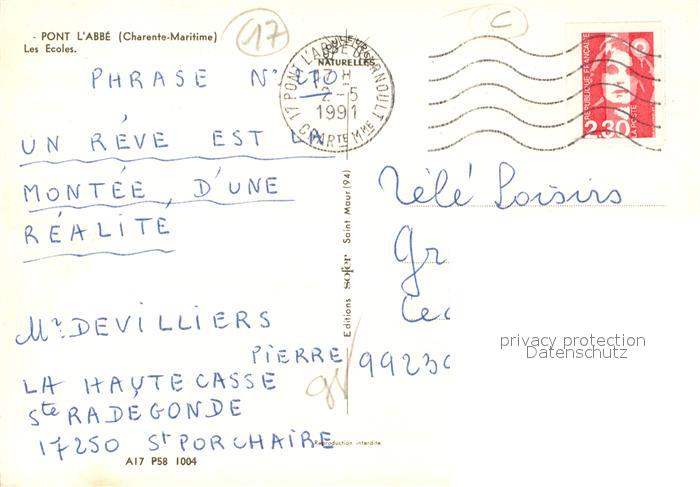 - PONT L'ABBÉ (Charente-Maritime)
Les Ecoles.
17
C
PHRASE N° 270
UN RÊVE EST LA
MONTÉE, D'UNE
RÉALITÉ
Mr. DEVILLIERS
PIERRE
LA HAUTE CASSE
Ste RADEGONDE
17250 St PORCHAIRE
A17 P58 1004
Reproduction interdite
Editions sofer Saint Maur (94)
17 PONT L'ABBE D'ARNOULT
NATURELLES
13 H
2-5
1991
CHARTE MME
REPUBLIQUE FRANÇAISE
2,30
LA POSTE
Télé Loisirs
Gr
Ce
9923
privacy protection
Datenschutz